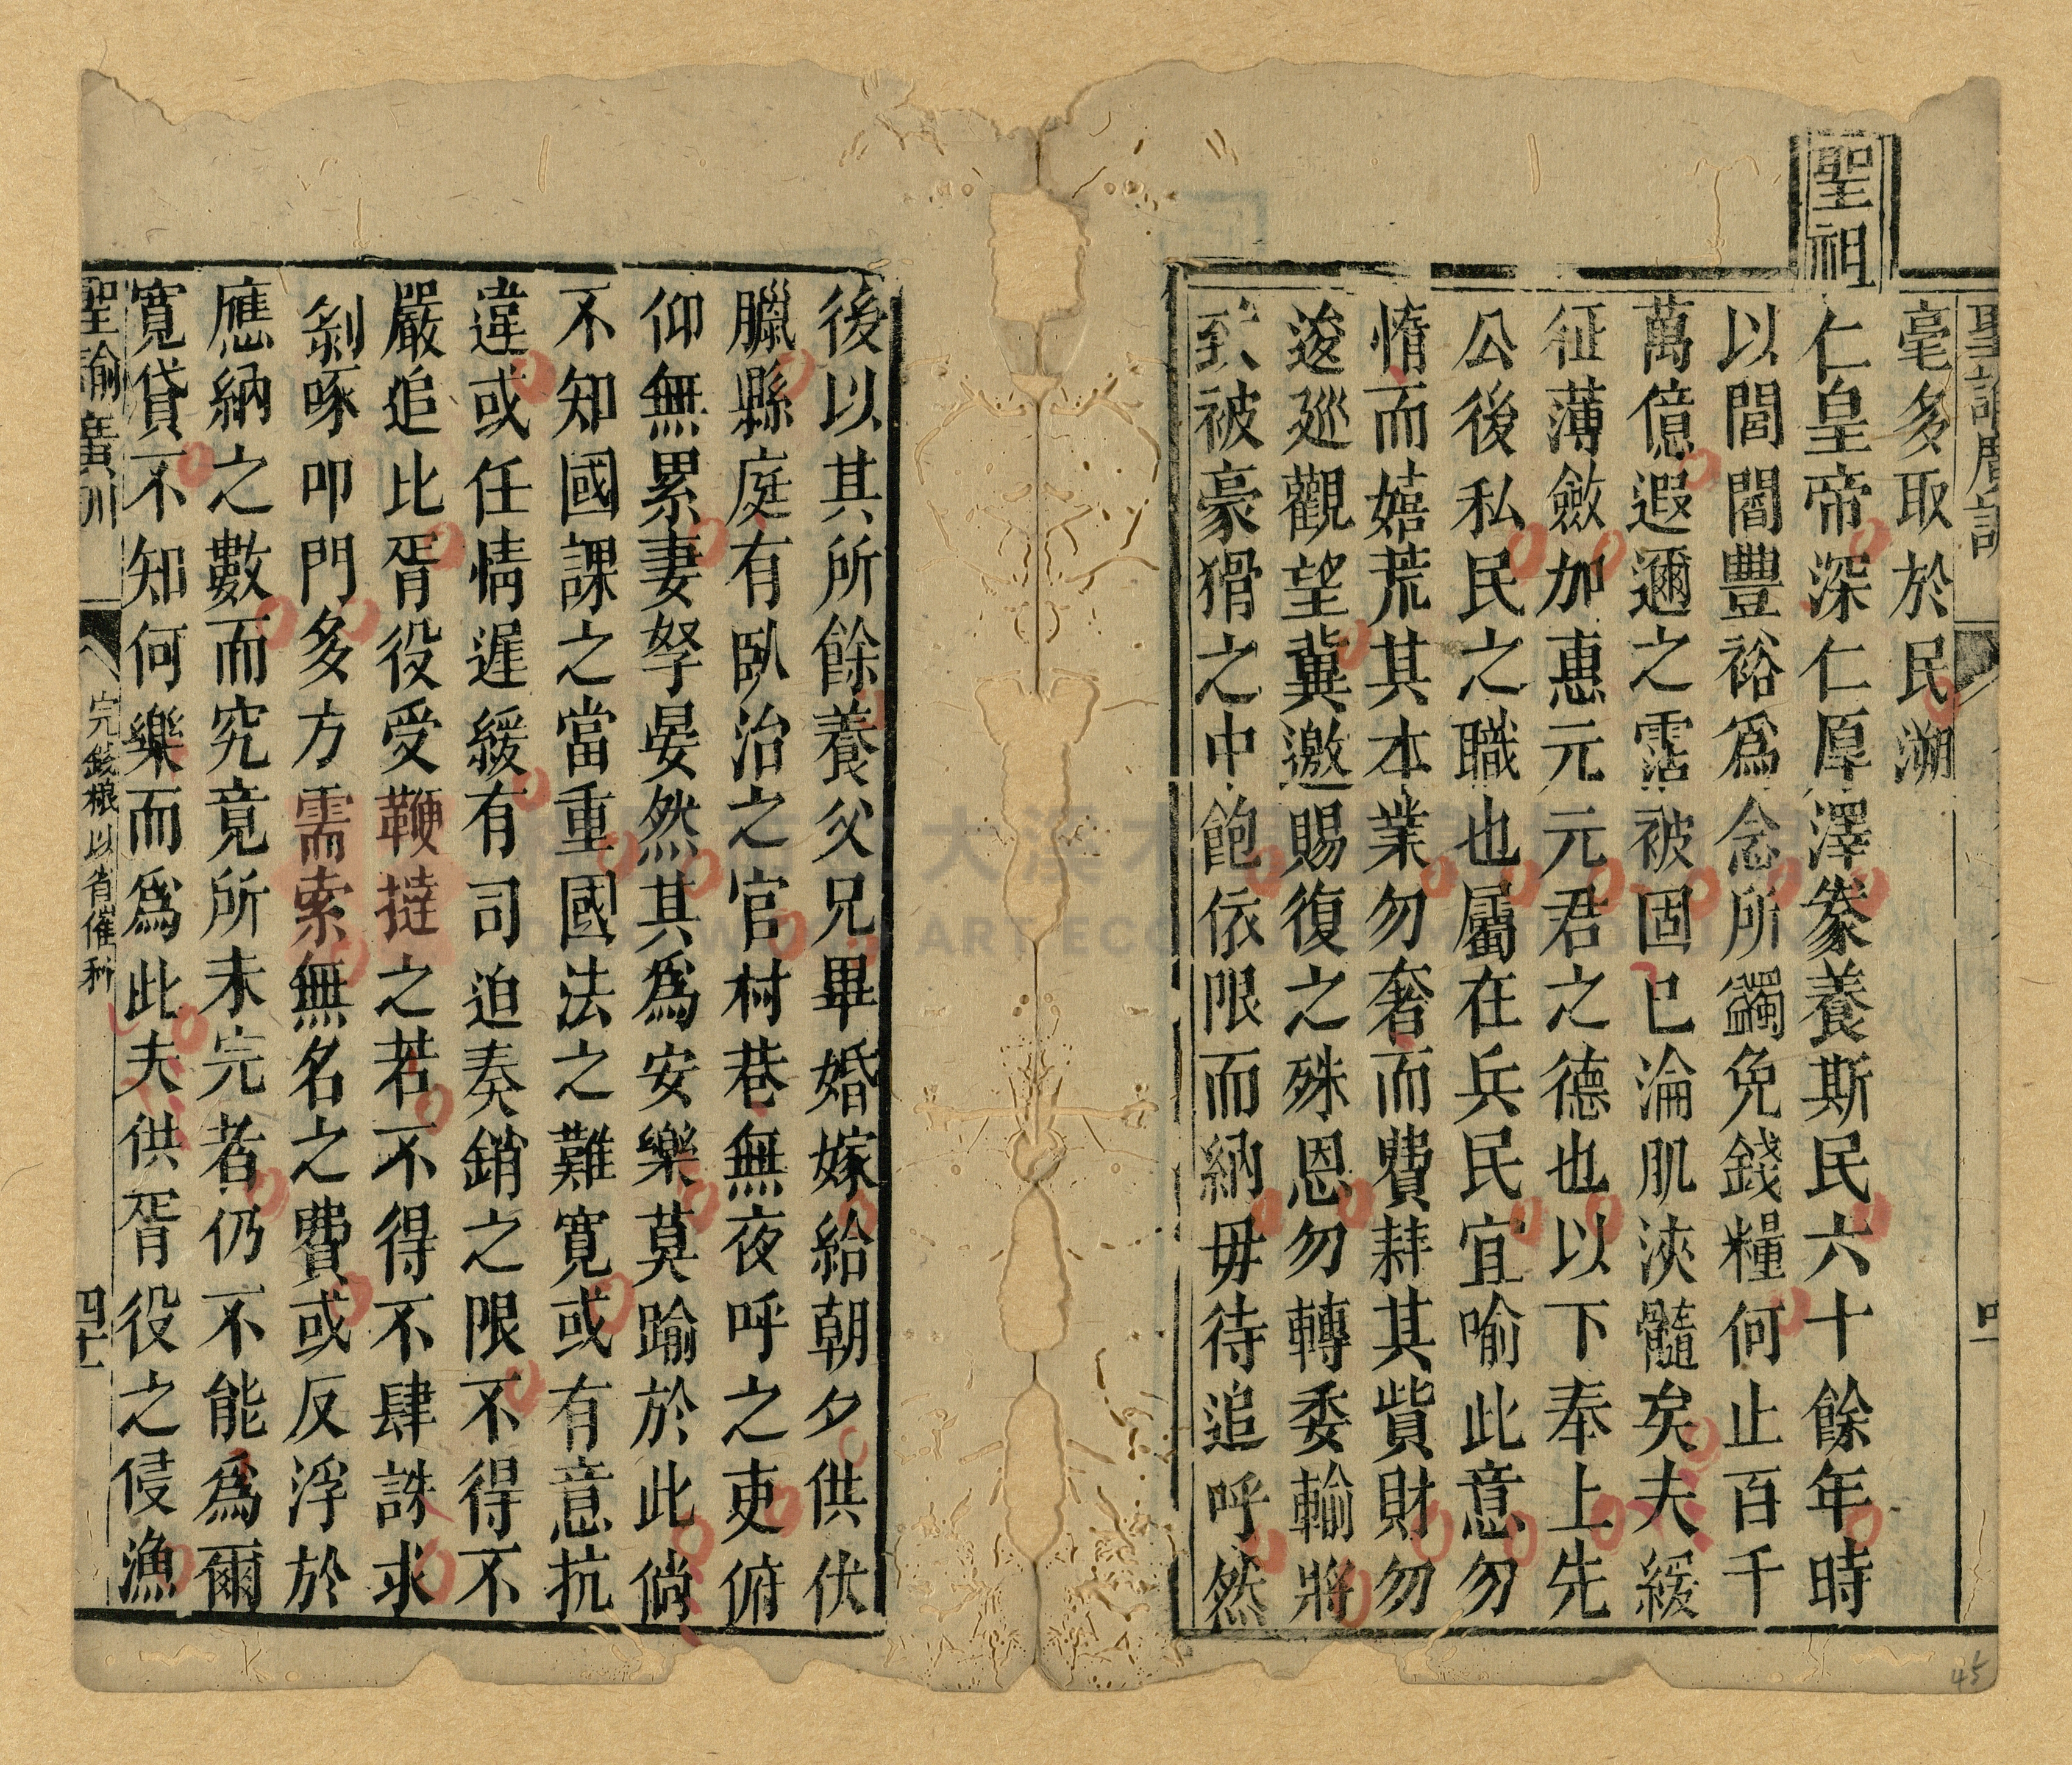 聖諭廣訓
毫多取於民溯
聖祖仁皇帝深仁厚澤豢養斯民六十餘年時
以閭閻豐裕爲念所蠲免錢糧何止百千
萬億遐邇之霑被固已淪肌浹髓矣夫緩
征薄斂加惠元元君之德也以下奉上先
公後私民之職也屬在兵民宜喻此意勿
惰而嬉荒其本業勿奢而費耗其貲財勿
逡廵觀望兾邀賜復之殊恩勿轉委輸將
致被豪猾之中飽依限而納毋待追呼然
後以其所餘養父兄畢婚嫁給朝夕供伏
臘縣庭有臥治之官村巷無夜呼之吏俯
仰無累妻孥晏然其爲安樂莫踰於此倘
不知國課之當重國法之難寬或有意抗
違或任情遲緩有司迫奏銷之限不得不
嚴追比胥役受鞭撻之若不得不肆誅求
剝啄叩門多方需索無名之費或反浮於
應納之數而究竟所未完者仍不能爲爾
寬貸不知何樂而爲此夫供胥役之侵漁
聖諭廣訓
完錢糧以省催科
四十一
45